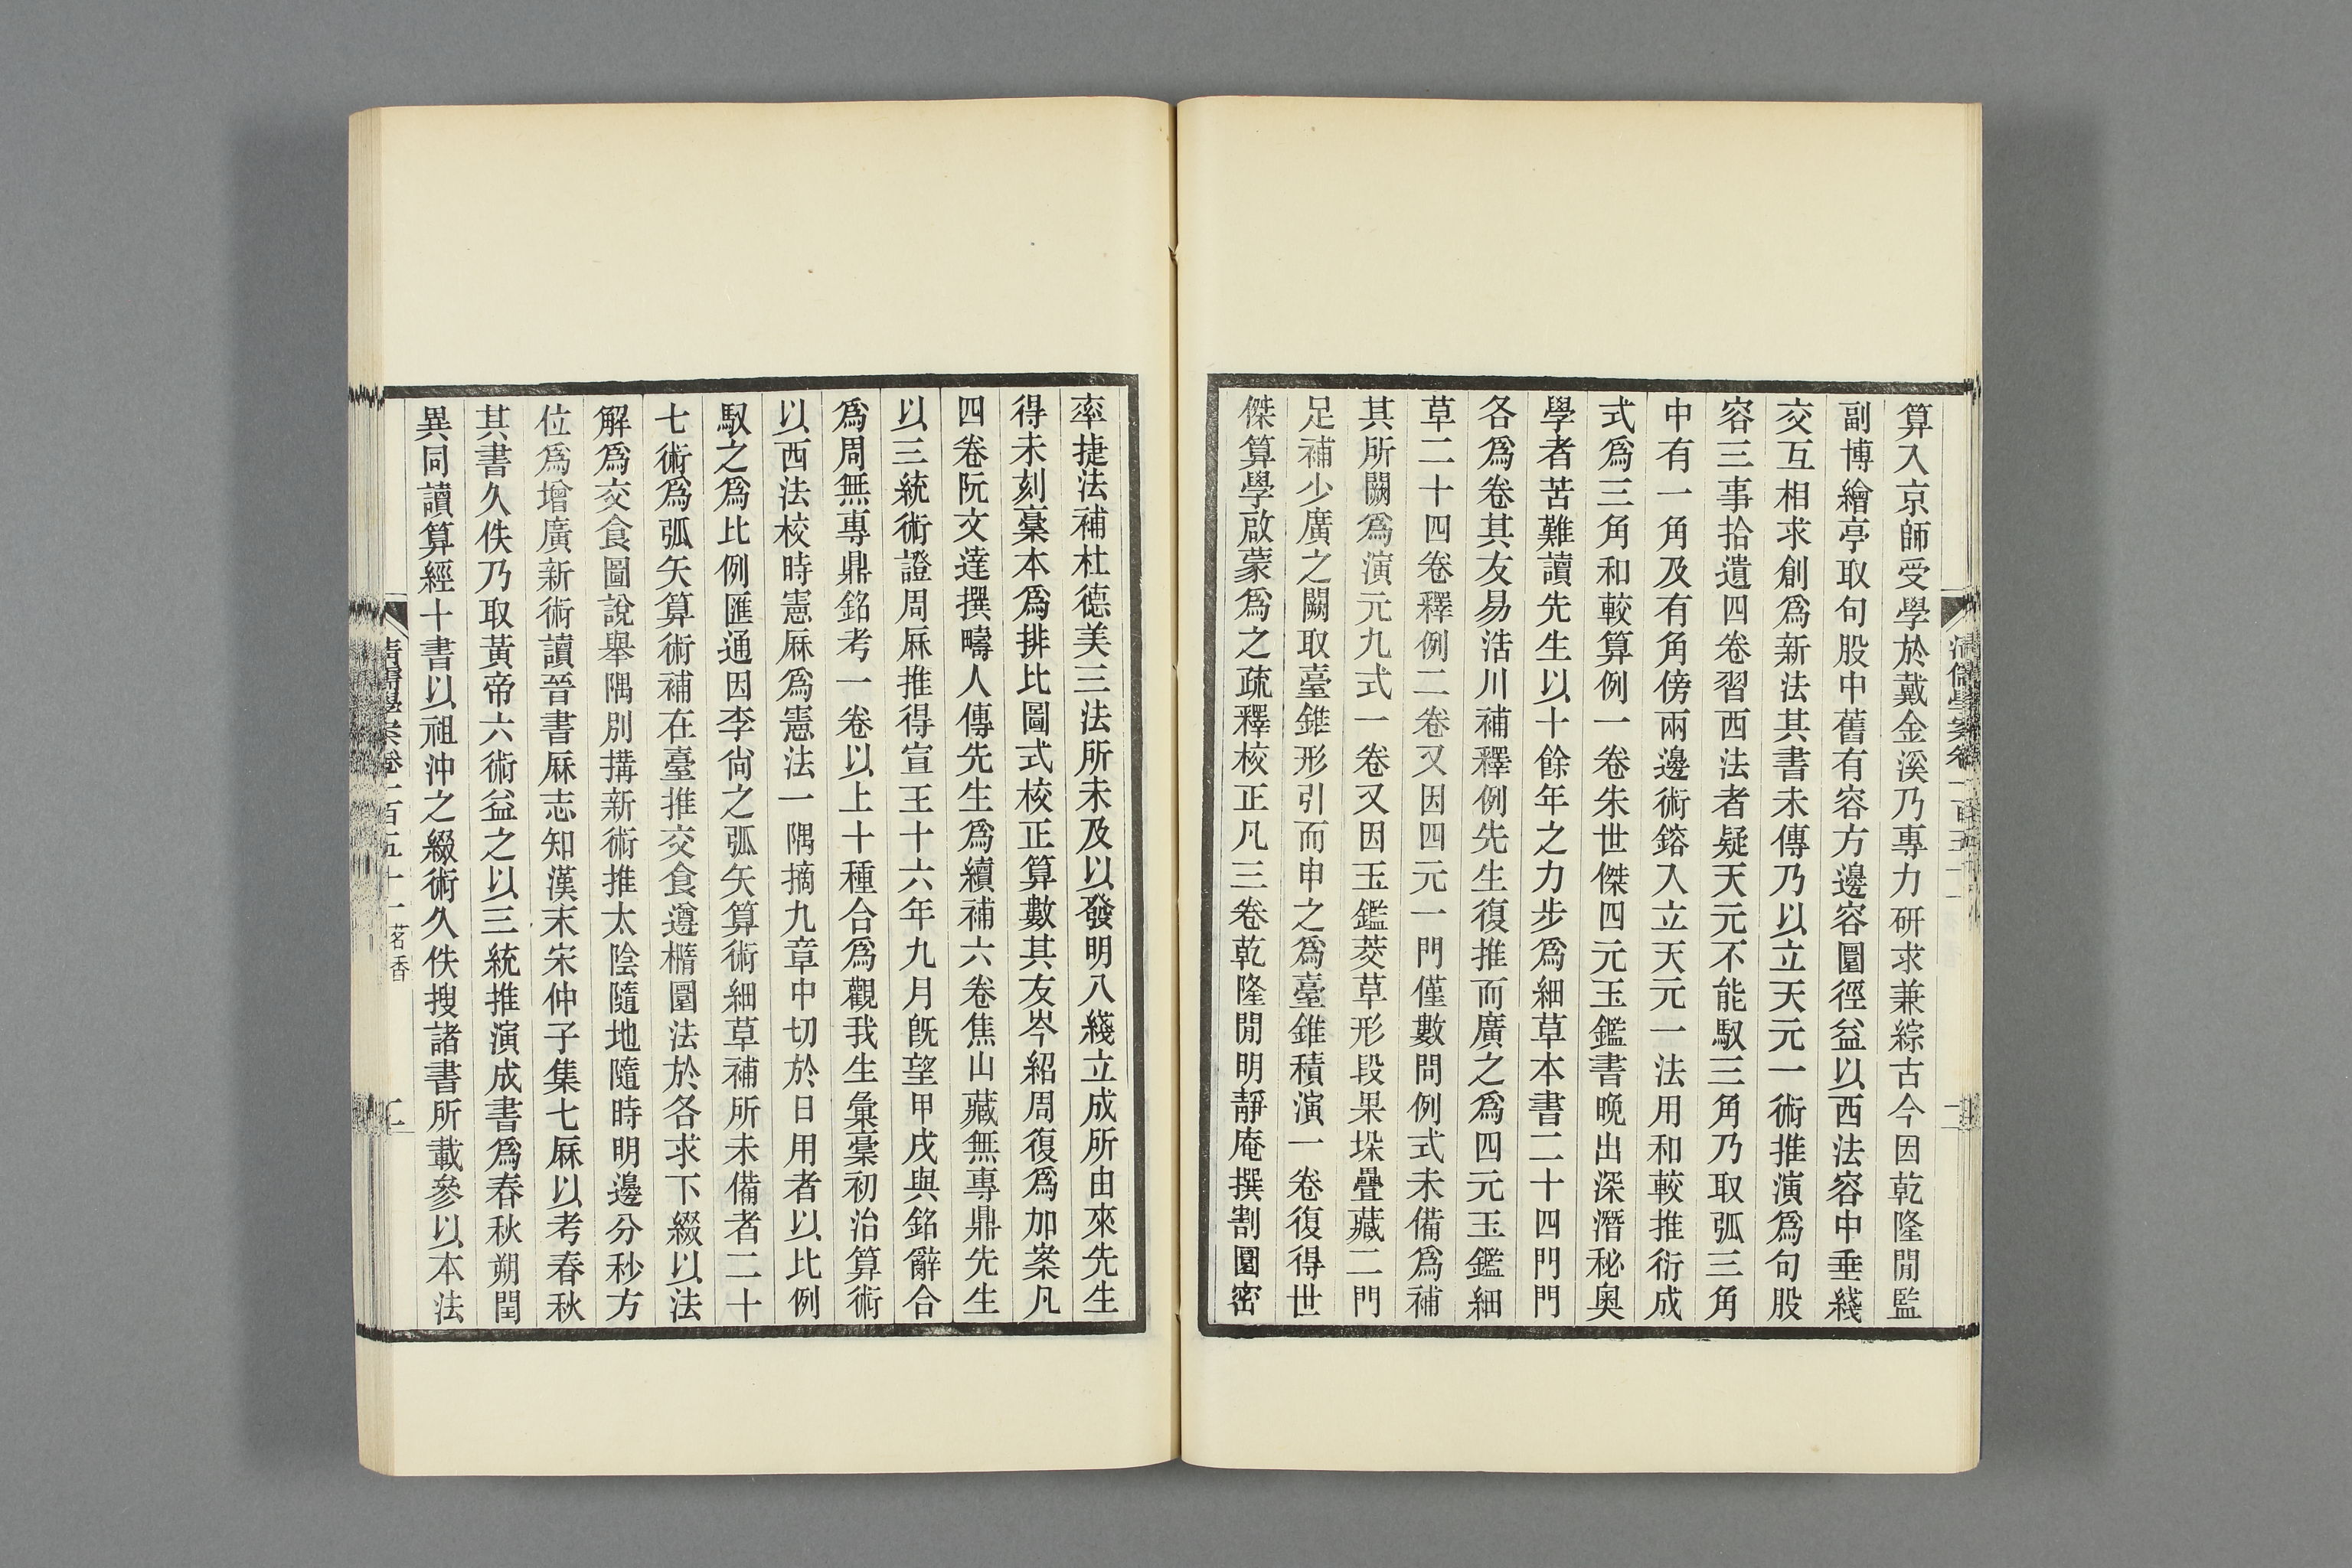 算入京師受學於戴金溪乃專力研求兼綜古今因乾隆閒監
副博繪亭取句股中舊有容方邊容圓徑益以西法容中垂綫
交互相求創爲新法其書未傳乃以立天元一術推演爲句股
容三事拾遺四卷習西法者疑天元不能馭三角乃取弧三角
中有一角及有角傍兩邊術鎔入立天元一法用和較推衍成
式爲三角和較算例一卷朱世傑四元玉鑑書晚出深潛秘奧
學者苦難讀先生以十餘年之力步爲細草本書二十四門門
各爲卷其友易浩川補釋例先生復推而廣之爲四元玉鑑細
草二十四卷釋例二卷又因四元一門僅數問例式未備爲補
其所闕爲演元九式一卷又因玉鑑菱草形段果垜疊藏二門
足補少廣之闕取臺錐形引而申之爲臺錐積演一卷復得世
傑算學啟蒙爲之疏釋校正凡三卷乾隆閒明靜庵撰割圜密
率捷法補杜德美三法所未及以發明八綫立成所由來先生
得未刻稾本爲排比圖式校正算數其友岑紹周復爲加案凡
四卷阮文達撰疇人傳先生爲續補六卷焦山藏無專鼎先生
以三統術證周厤推得宣王十六年九月旣望甲戌與銘辭合
爲周無專鼎銘考一卷以上十種合爲觀我生彙稾初治算術
以西法校時憲厤爲憲法一隅摘九章中切於日用者以比例
馭之爲比例匯通因李尙之弧矢算術細草補所未備者二十
七術爲弧矢算術補在臺推交食遵橢圓法於各求下綴以法
解爲交食圖說舉隅別搆新術推太陰隨地隨時明邊分秒方
位爲增廣新術讀晉書厤志知漢末宋仲子集七厤以考春秋
其書久佚乃取黃帝六術益之以三統推演成書爲春秋朔閏
異同讀算經十書以祖沖之綴術久佚搜諸書所載參以本法
清儒學案卷一百五十一 茗香